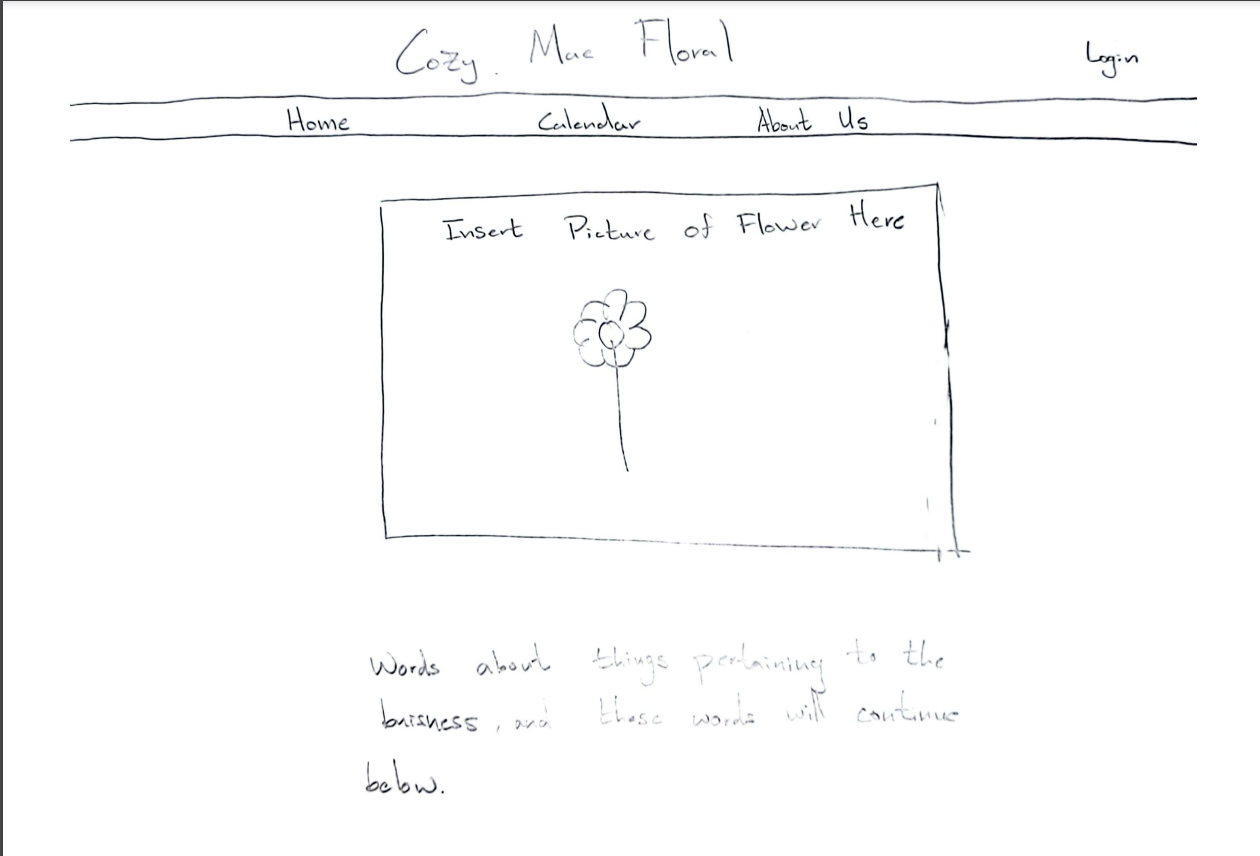 Cozy Mae Floral
Login
Home Calendar About Us
Insert Picture of Flower Here
Words about things pertaining to the
buisness, and those words will continue
below.